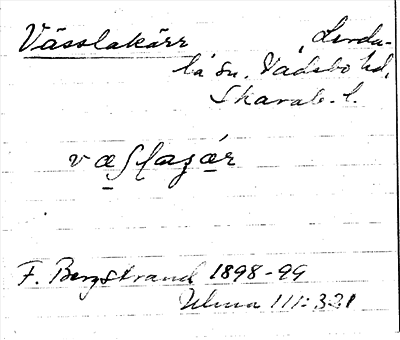 Vässlakärr, Lerdu-
la sn. Vadsbo hd,
Skarab. l.
F. Bergstrand 1898-99
Ulma 111:331